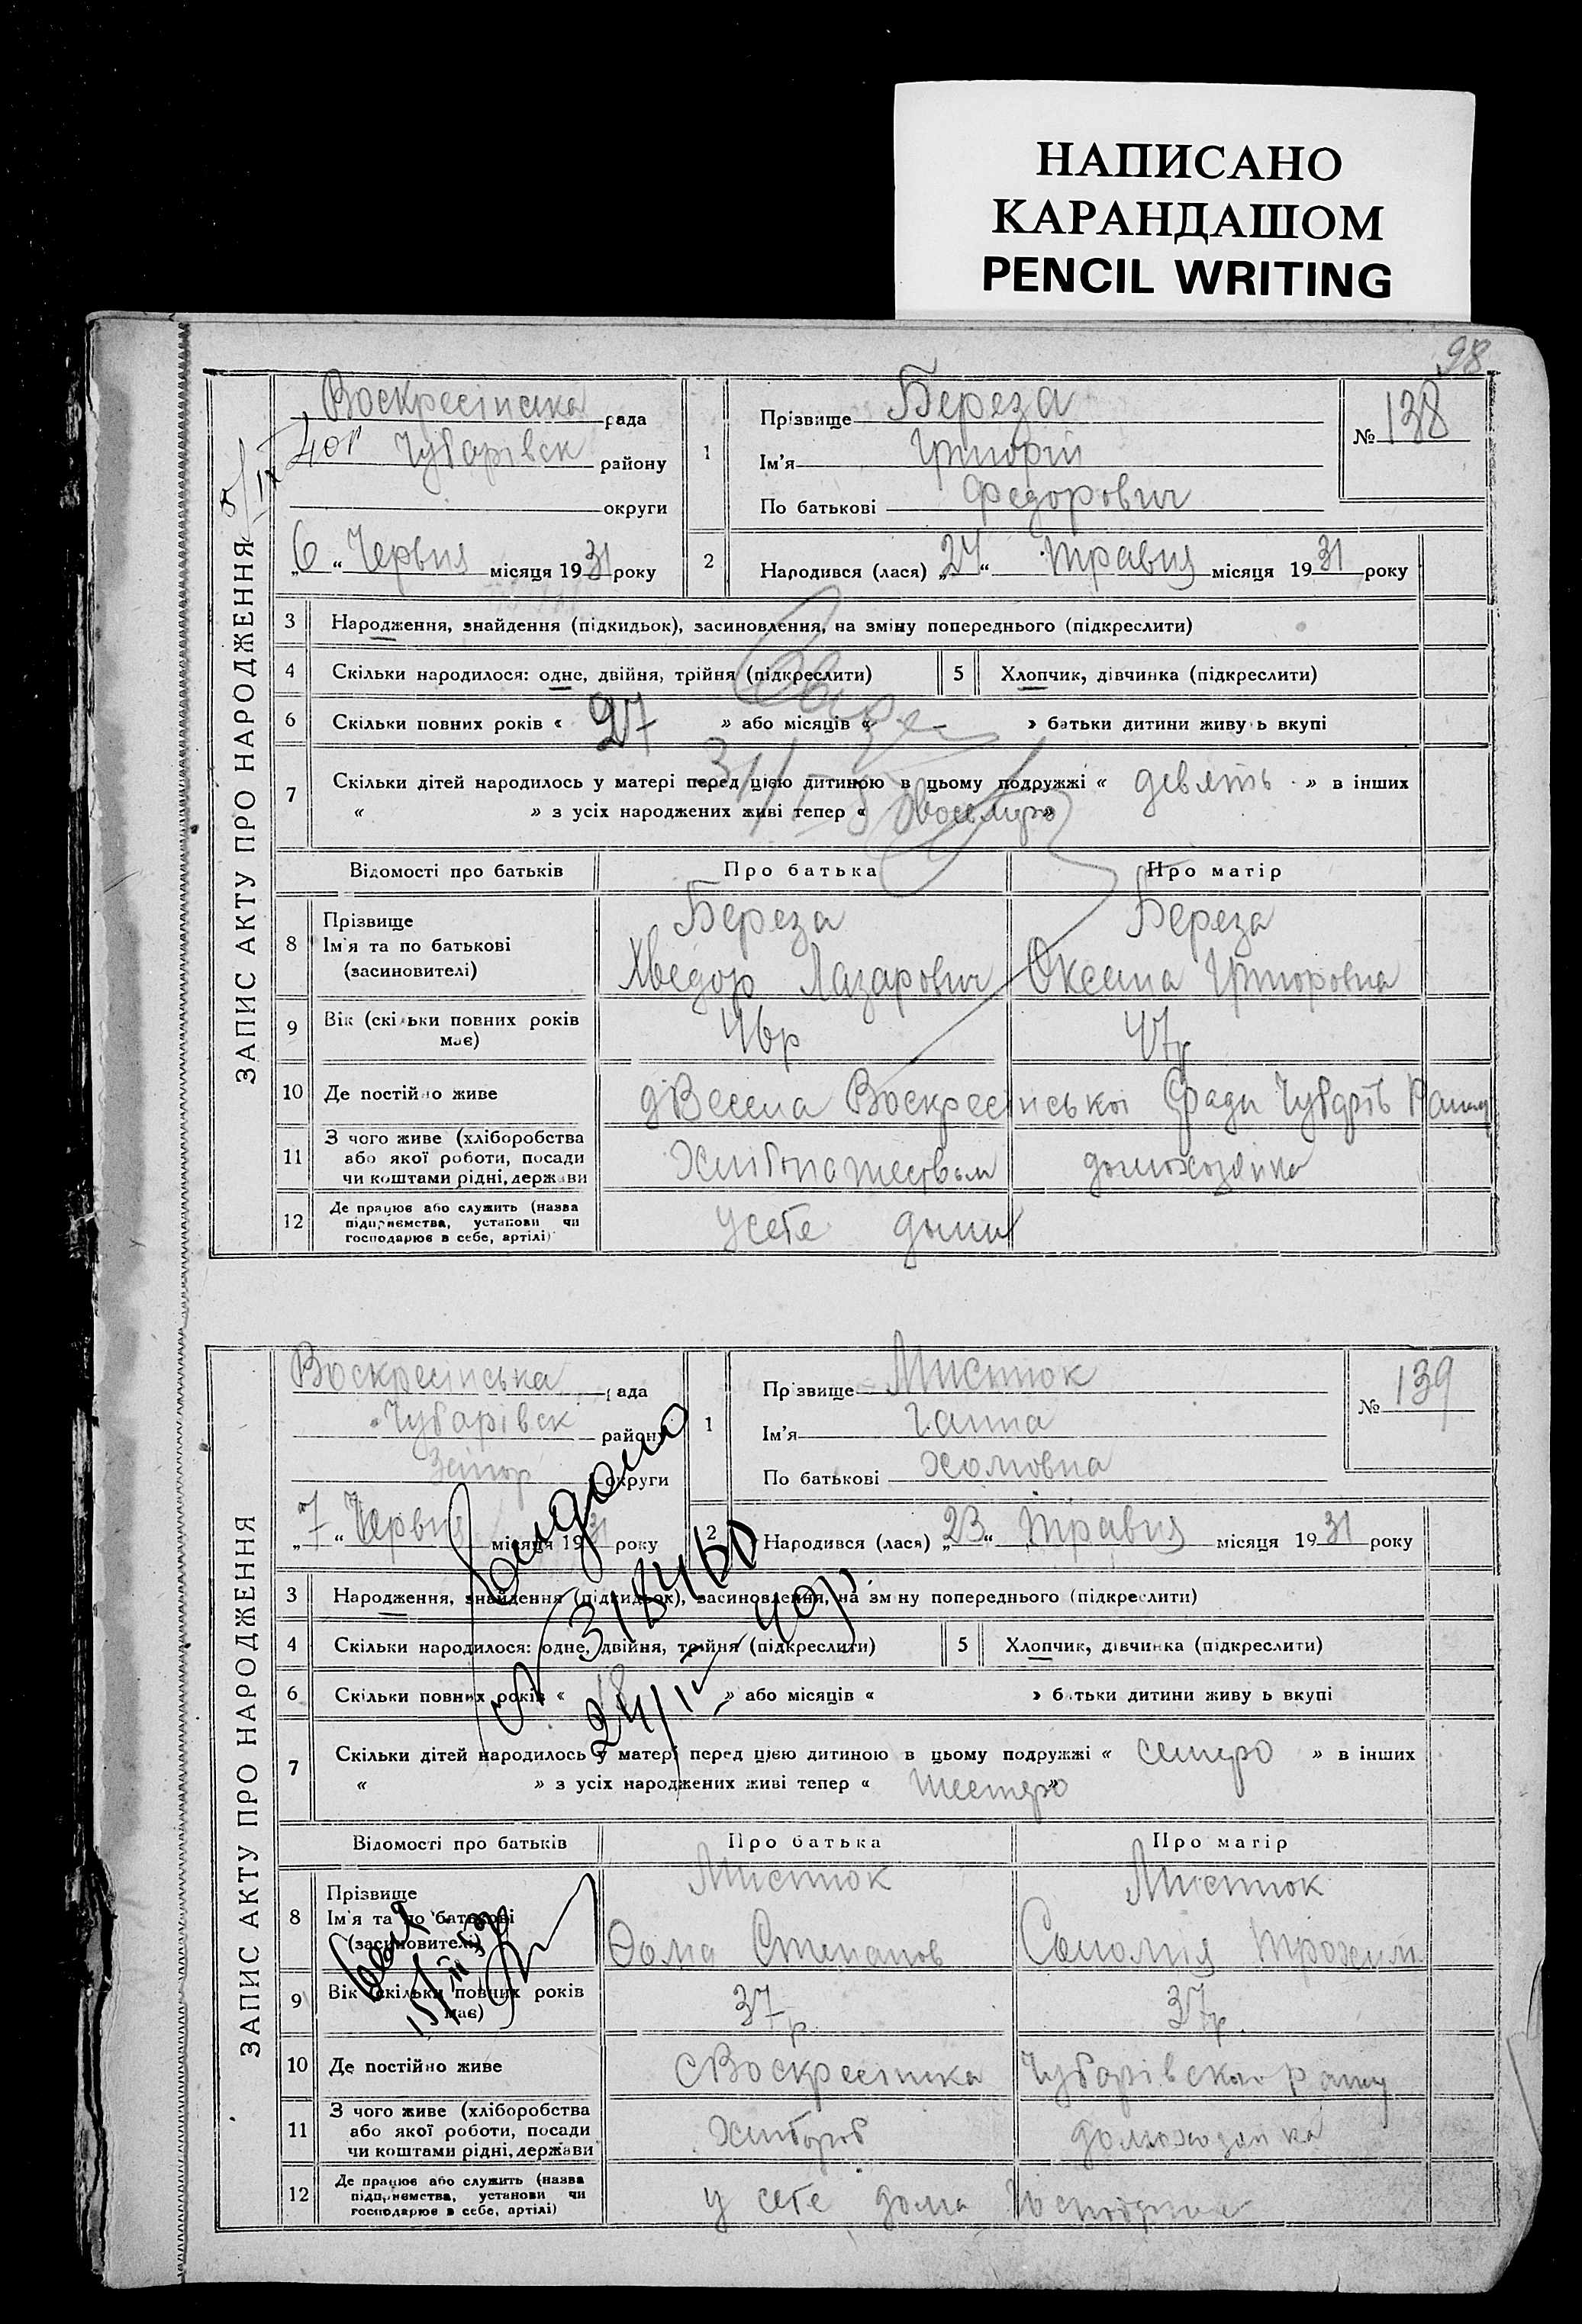 НАПИСАНО
КАРАНДАШОМ
PENCIL WRITING
98
ЗАПИС АКТУ ПРО НАРОДЖЕННЯ
Воскресінська рада
Чубарівск району
округи
„6“ Червня місяця 1931 року
1 Прізвище Береза
Ім'я Григорій
По батькові Федорович
№ 138
2 Народився (лася) „24“ Травня місяця 1931 року
3 Народження, знайдення (підкидьок), засиновлення, на зміну попереднього (підкреслити)
4 Скільки народилося: одне, двійня, трійня (підкреслити) 5 Хлопчик, дівчинка (підкреслити)
6 Скільки повних років « 27 » або місяців « » батьки дитини живуть вкупі
7 Скільки дітей народилось у матері перед цією дитиною в цьому подружжі « девять » в інших
« » з усіх народжених живі тепер « восьмеро »
Відомості про батьків Про батька Про матір
8 Прізвище
Ім'я та по батькові
(засиновителі)
Береза Береза
Хведор Лазарович Оксена Григоровна
9 Вік (скільки повних років має) 46р 47р
10 Де постійно живе Весела Воскресінської Сради Чубарів Району
11 З чого живе (хліборобства
або якої роботи, посади
чи коштами рідні, держави
домохозяйка
12 Де працює або служить (назва
підприємства, установи чи
господарює в себе, артілі)
у себе дома
ЗАПИС АКТУ ПРО НАРОДЖЕННЯ
Воскресінська рада
Чубарівск району
Запор округи
„7“ Червня місяця 1931 року
1 Прізвище Мистюк
Ім'я Ганна
По батькові Хомовна
№ 139
2 Народився (лася) „23“ Травня місяця 1931 року
Видано
318460
3 Народження, знайдення (підкидьок), засиновлення, на зміну попереднього (підкреслити)
4 Скільки народилося: одне, двійня, трійня (підкреслити) 5 Хлопчик, дівчинка (підкреслити)
6 Скільки повних років « 18 » або місяців « » батьки дитини живуть вкупі
7 Скільки дітей народилось у матері перед цією дитиною в цьому подружжі « семеро » в інших
« » з усіх народжених живі тепер « шестеро »
Відомості про батьків Про батька Про матір
8 Прізвище
Ім'я та по батькові
(засиновителі)
Мистюк Мистюк
Фома Степанов Соломия Трохим
9 Вік (скільки повних років має) 37р. 37р.
10 Де постійно живе С Воскресінка Чубарівского району
11 З чого живе (хліборобства
або якої роботи, посади
чи коштами рідні, держави
Хлібороб домохозайка
12 Де працює або служить (назва
підприємства, установи чи
господарює в себе, артілі)
у себе дома